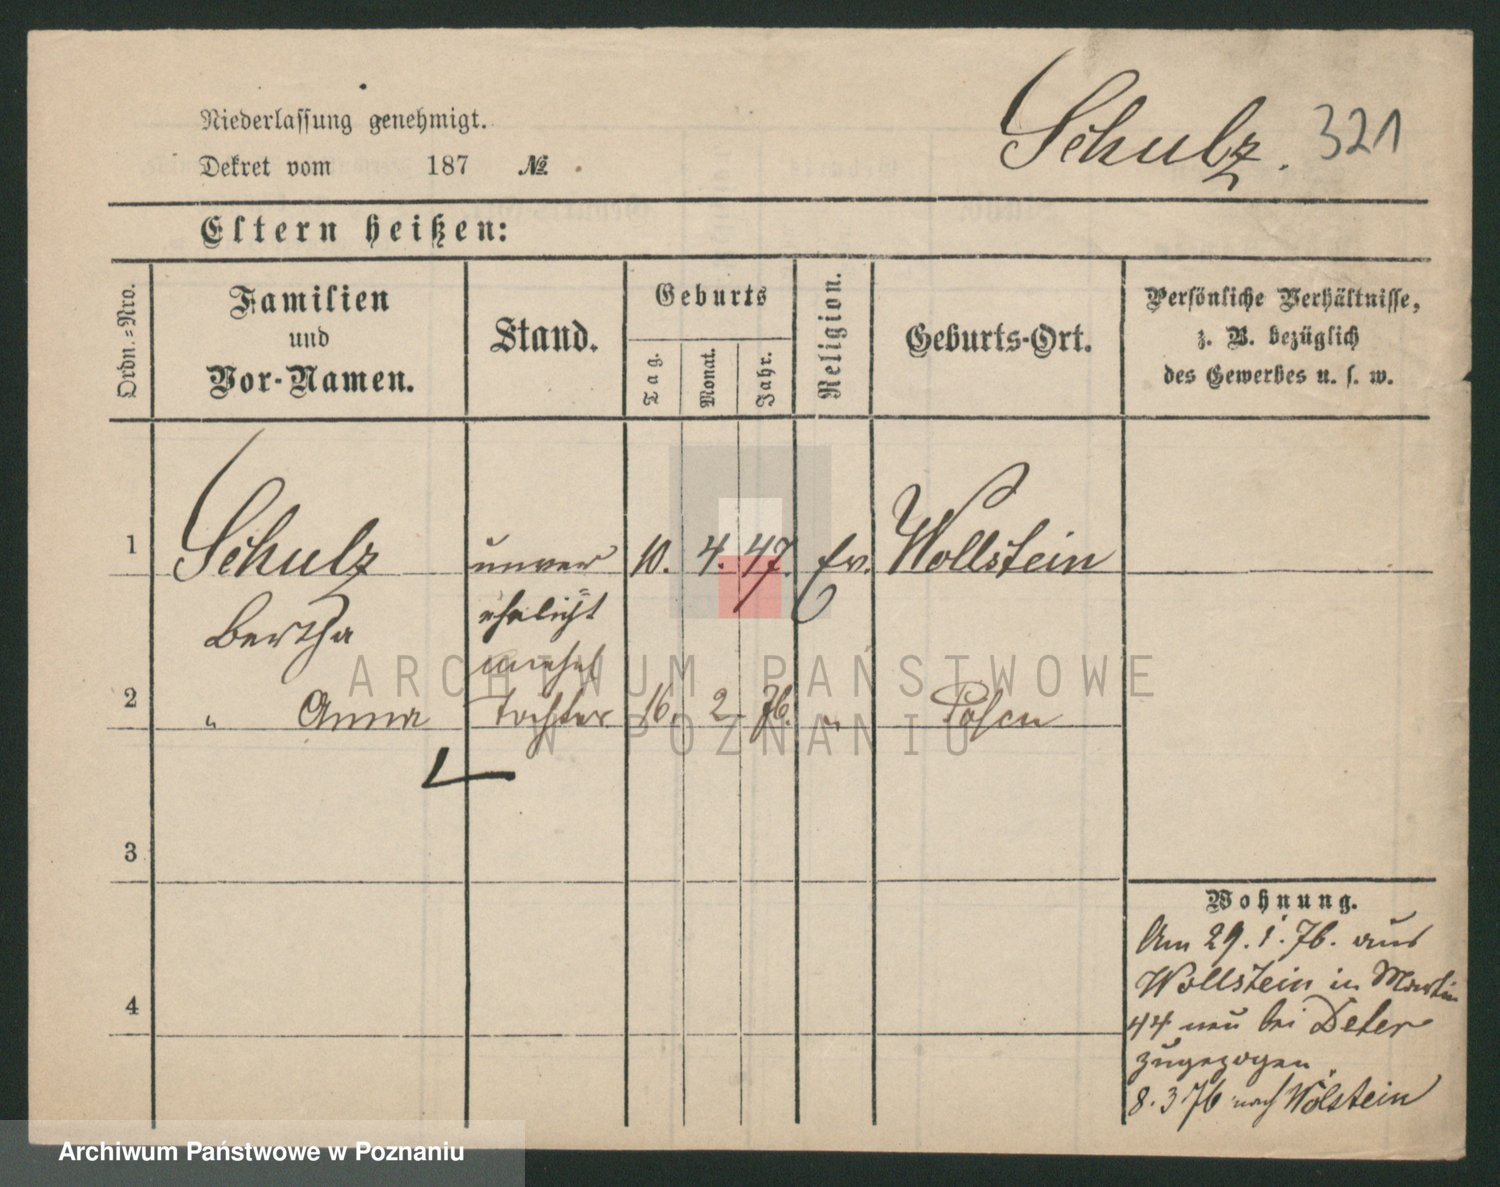 Schulz. 321
Niederlassung genehmigt.
Dekret vom 187 №
Eltern heißen:
Ordn.-Nro.
Familien
und
Vor-Namen.
Stand.
Geburts
Tag.
Monat.
Jahr.
Religion.
Geburts-Ort.
Persönliche Verhältnisse,
z. B. bezüglich
des Gewerbes u. s. w.
1 Schulz unver 10. 4. 47. Ev. Wollstein
Bertha ehelicht
unehel
2 " Anna Tochter 16. 2 76. " Posen
3
4
Wohnung.
Am 29. 1. 76. aus
Wollstein in Martin
44 neu bei Deter
zugezogen.
8. 3 76 nach Wolstein
ARCHIWUM PAŃSTWOWE
W POZNANIU
Archiwum Państwowe w Poznaniu